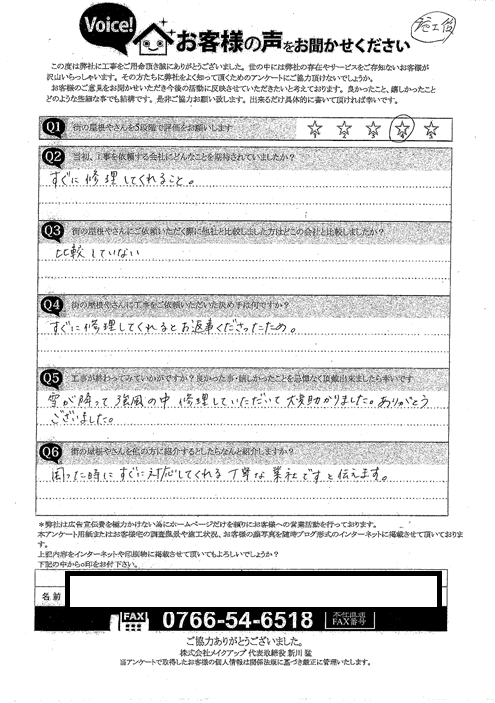 Voice!
お客様の声をお聞かせください
施工後
この度は弊社に工事をご用命頂き誠にありがとうございました。世の中には弊社の存在やサービスをご存知ないお客様が
沢山いらっしゃいます。その方たちに弊社をよく知って頂くためのアンケートにご協力頂けないでしょうか。
お客様のご意見をお聞かせいただき今後の活動に反映させていただきたいと考えております。良かったこと、嬉しかったこと
どのような些細な事でも結構です。是非ご協力お願い致します。出来るだけ具体的に書いて頂ければ幸いです。
Q1 街の屋根やさんを5段階で評価をお願いします
1 2 3 4 5
Q2 当初、工事を依頼する会社にどんなことを期待されていましたか?
すぐに修理してくれること。
Q3 街の屋根やさんにご依頼いただく際に他社と比較しました方はどこの会社と比較しましたか?
比較していない
Q4 街の屋根やさんに工事をご依頼いただいた決め手は何ですか?
すぐに修理してくれるとお返事くださったため。
Q5 工事が終わってみていかがですか?良かった事・嬉しかったことを忌憚なく頂戴出来ましたら幸いです
雪が降って強風の中修理していただいて大変助かりました。ありがとう
ございました。
Q6 街の屋根やさんを他の方に紹介するとしたらなんと紹介しますか?
困った時にすぐに対応してくれる丁寧な業社ですと伝えます。
*弊社は広告宣伝費を極力かけない為にホームページだけを頼りにお客様への営業活動を行っております。
本アンケート用紙またはお客様宅の調査風景や施工状況、お客様の顔写真を随時ブログ形式のインターネットに掲載させて頂いておりま
す。
上記内容をインターネットや印刷物に掲載させて頂いてもよろしいでしょうか?
下記の中から○印をお付下さい。
名前
FAX 0766-54-6518 本社直通
FAX番号
ご協力ありがとうございました。
株式会社メイクアップ 代表取締役 新川 猛
当アンケートで取得したお客様の個人情報は関係法規に基づき厳正に管理いたします。